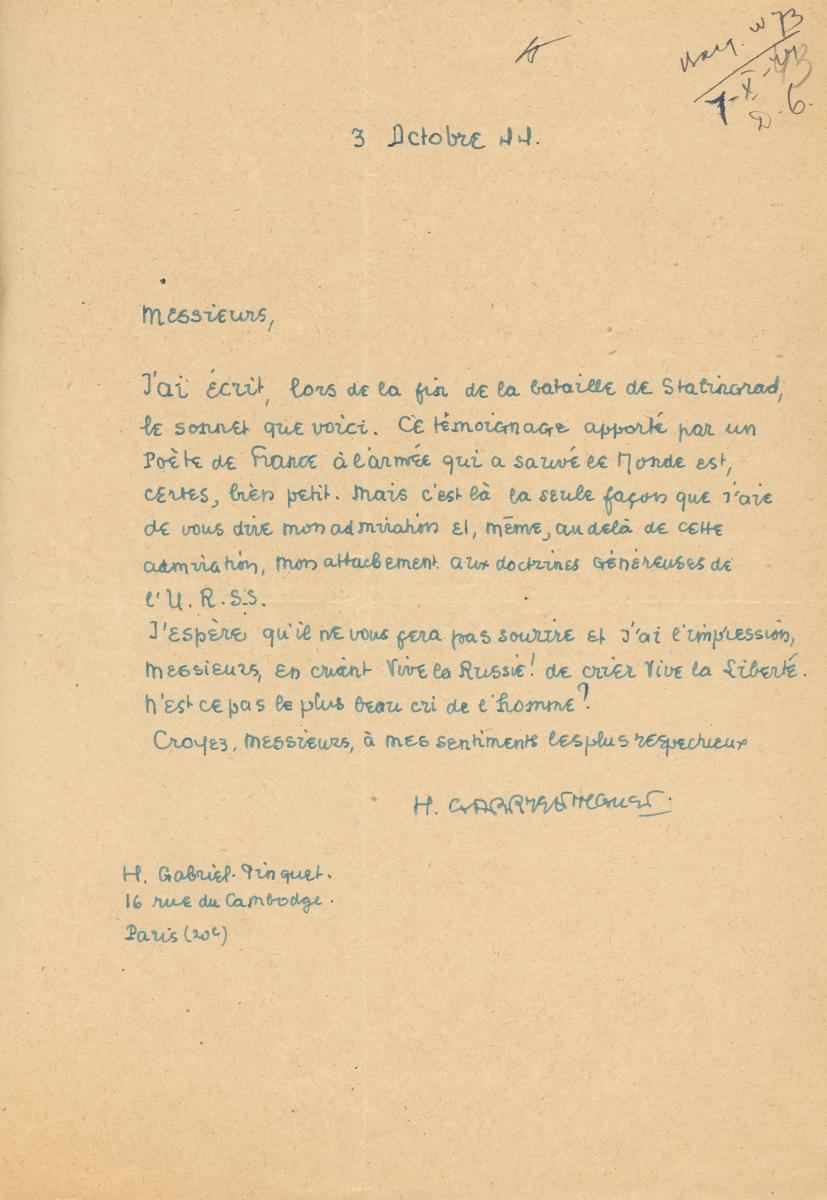 7-X-44
D. 6.
3 Octobre 44.
Messieurs,
J'ai écrit, lors de la fin de la bataille de Stalingrad,
le sonnet que voici. Ce témoignage apporté par un
Poète de France à l'armée qui a sauvé le Monde est,
certes, bien petit. Mais c'est là la seule façon que j'aie
de vous dire mon admiration et, même, au delà de cette
admiration, mon attachement aux doctrines généreuses de
l'U.R.S.S.
J'espère qu'il ne vous fera pas sourire et j'ai l'impression,
Messieurs, en criant Vive la Russie! de crier Vive la Liberté.
N'est ce pas le plus beau cri de l'homme?
Croyez, Messieurs, à mes sentiments les plus respectueux
H. Gabriel-
H. Gabriel-Pinquet.
16 rue du Cambodge.
Paris (20e)